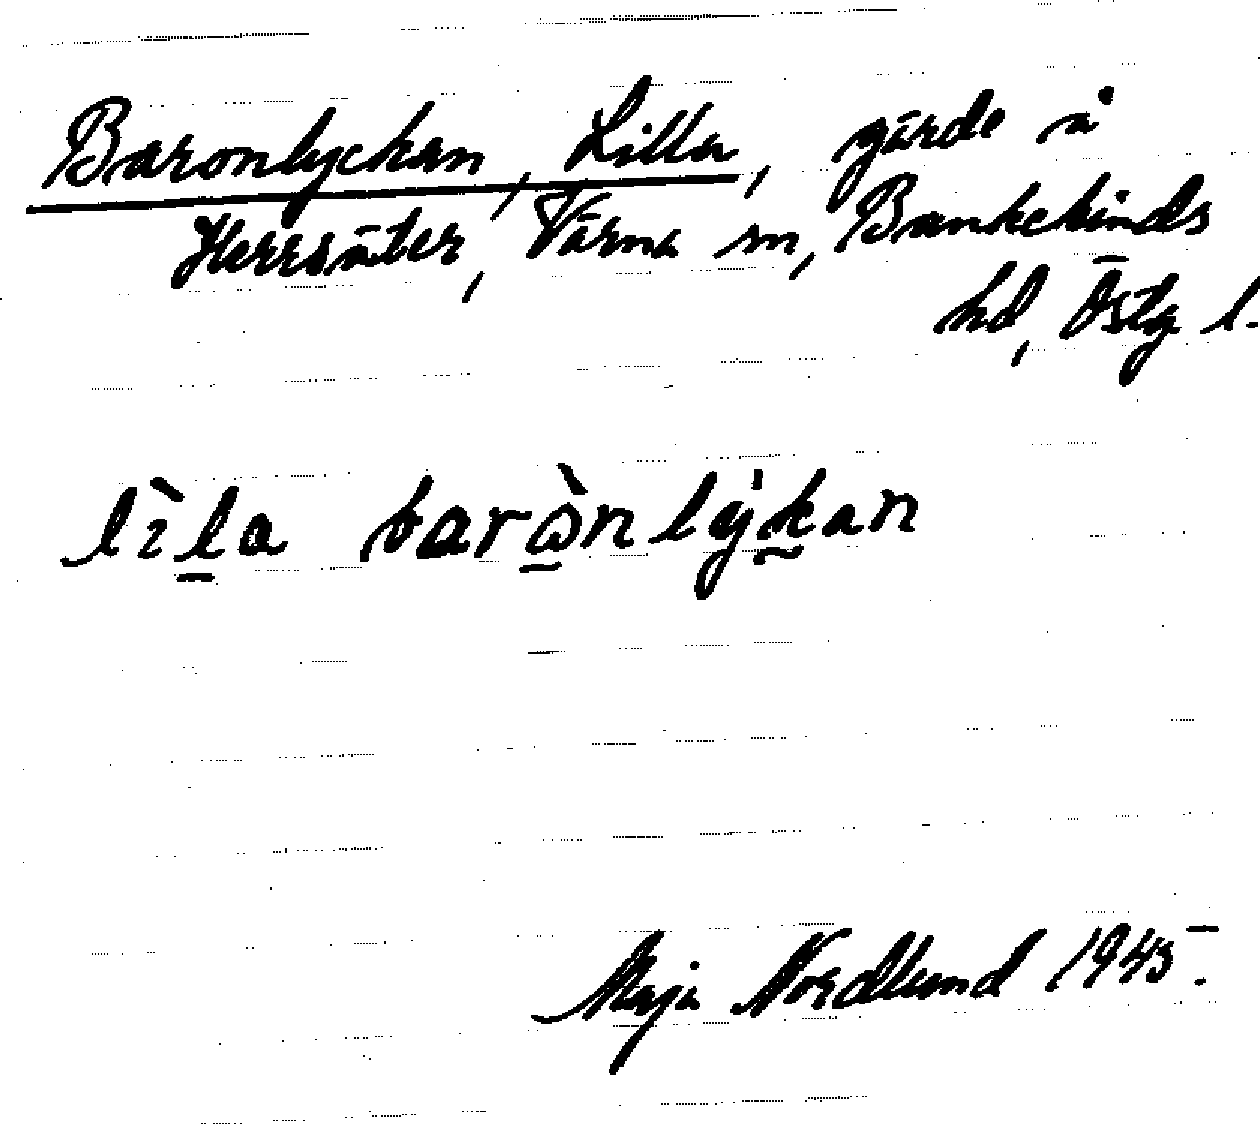 Baronlyckan, Lilla, gärde å
Herrsäter, Värna sn, Bankekinds
hd, Östg l.
lìla barωnlýkan
Maja Nordlund 1945.